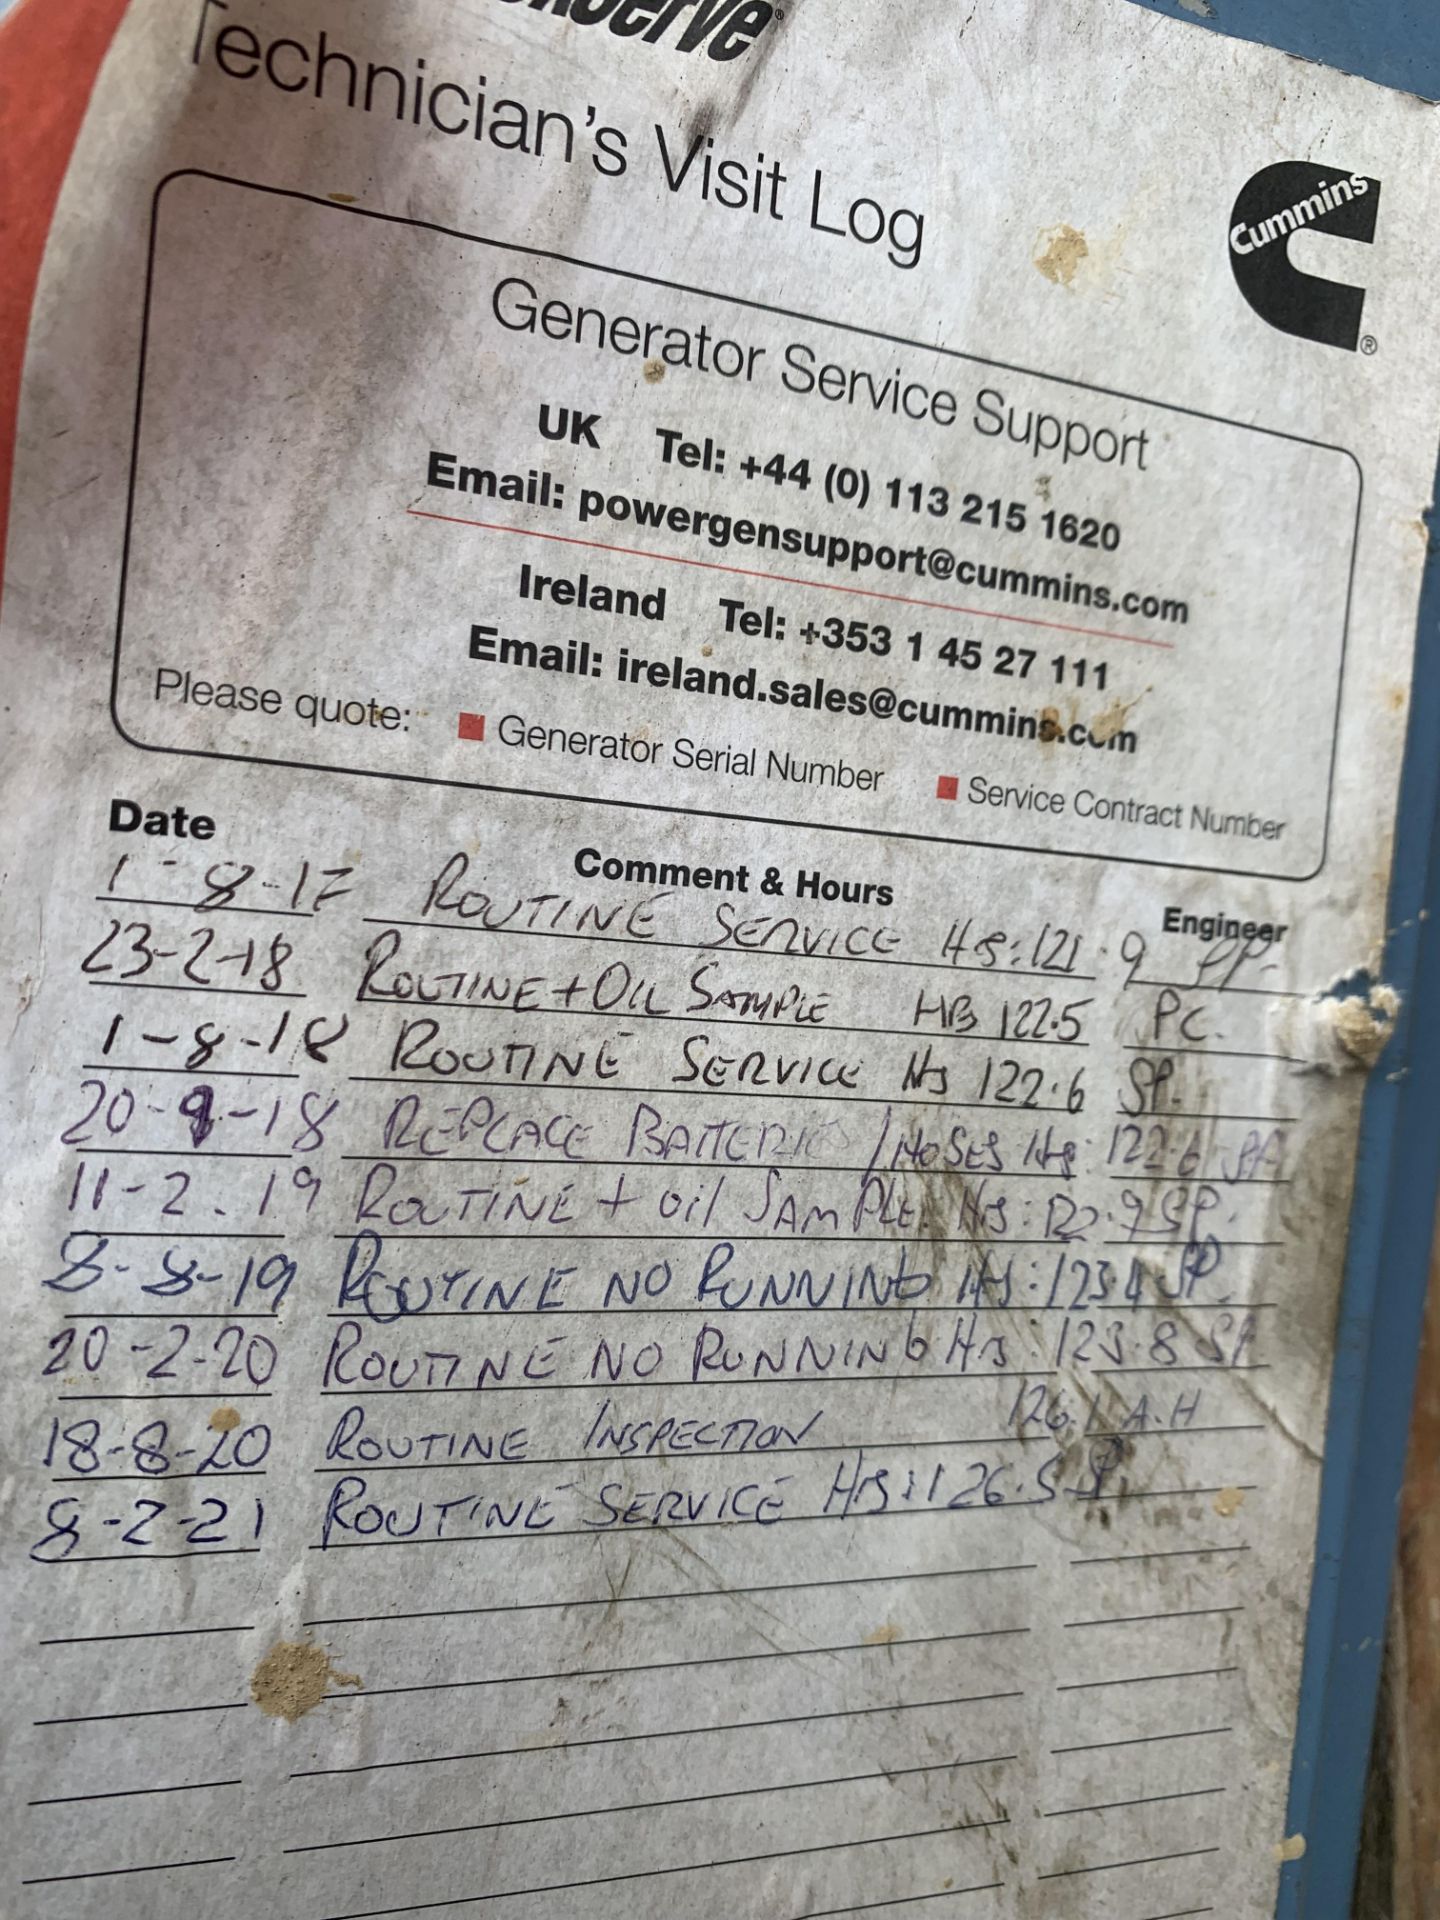 Technician's Visit Log
Cummins
Generator Service Support
UK Tel: +44 (0) 113 215 1620
Email: powergensupport@cummins.com
Ireland Tel: +353 1 45 27 111
Email: ireland.sales@cummins.com
Please quote: Generator Serial Number Service Contract Number
Date Comment & Hours Engineer
1-8-17 ROUTINE SERVICE HRS:121.9 SP.
23-2-18 ROUTINE + OIL SAMPLE HRS 122.5 PC.
1-8-18 ROUTINE SERVICE HRS 122.6 SP.
20-9-18 REPLACE BATTERIES / HOSES HRS: 122.6
11-2.19 ROUTINE + OIL SAMPLE. HRS: 122.9 SP.
8-8-19 ROUTINE NO RUNNING HRS:123.4 SP.
20-2-20 ROUTINE NO RUNNING HRS:123.8 SP
18-8-20 ROUTINE INSPECTION 126.1 A.H
8-2-21 ROUTINE SERVICE HRS:126.5 SP.